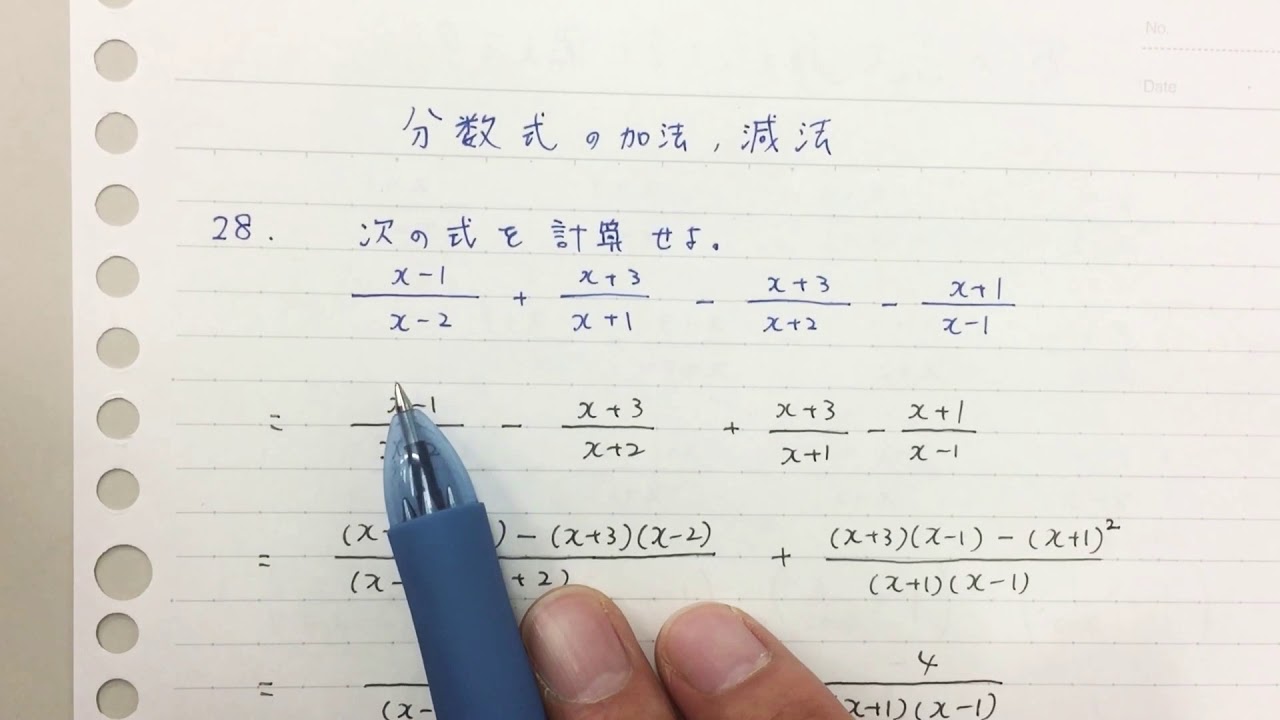 No.
Date
分数式の加法，減法
28. 次の式を計算せよ。
(x-1)/(x-2) + (x+3)/(x+1) - (x+3)/(x+2) - (x+1)/(x-1)
= -1 - (x+3)/(x+2) + (x+3)/(x+1) - (x+1)/(x-1)
= (x- ) - (x+3)(x-2) / (x- +2) + (x+3)(x-1) - (x+1)² / (x+1)(x-1)
= (x- 4 / (x+1)(x-1)